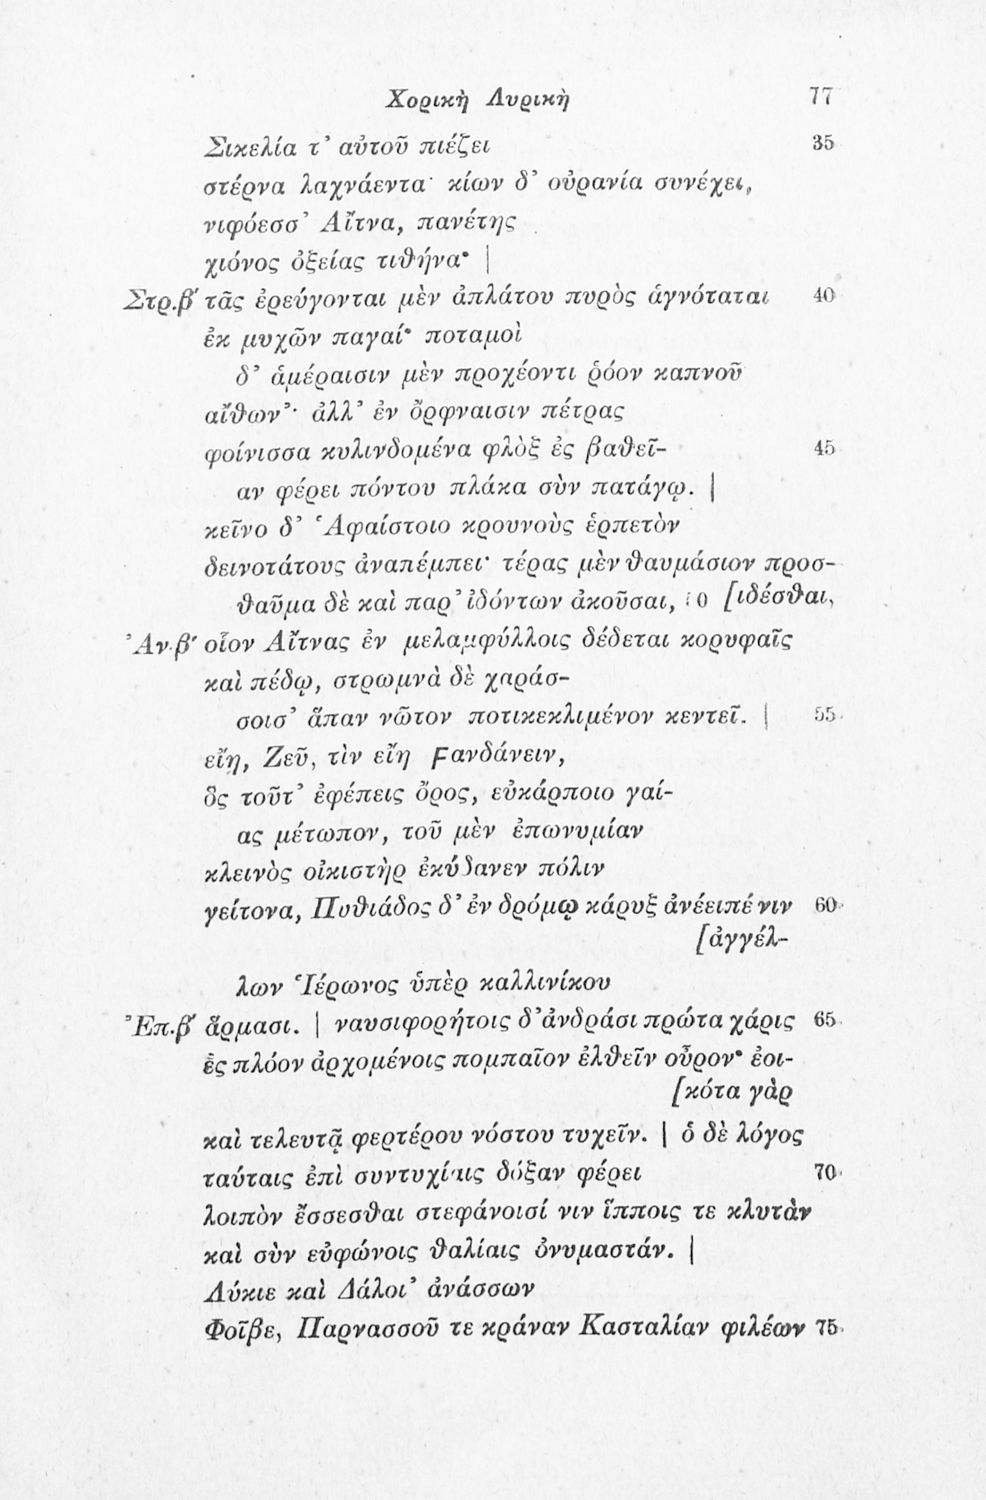 Χορικὴ Λυρικὴ 77
Σικελία τ᾽ αὐτοῦ πιέζει 35
στέρνα λαχνάεντα· κίων δ᾽ οὐρανία συνέχει,
νιφόεσσ᾽ Αἴτνα, πανέτης
χιόνος ὀξείας τιθήνα· |
Στρ.β΄ τᾶς ἐρεύγονται μὲν ἀπλάτου πυρὸς ἁγνόταται 40
ἐκ μυχῶν παγαί· ποταμοὶ
δ᾽ ἁμέραισιν μὲν προχέοντι ῥόον καπνοῦ
αἴθων᾽· ἀλλ᾽ ἐν ὄρφναισιν πέτρας
φοίνισσα κυλινδομένα φλὸξ ἐς βαθεῖ- 45
αν φέρει πόντου πλάκα σὺν πατάγῳ. |
κεῖνο δ᾽ Ἁφαίστοιο κρουνοὺς ἑρπετὸν
δεινοτάτους ἀναπέμπει· τέρας μὲν θαυμάσιον προσ-
θαῦμα δὲ καὶ παρ᾽ ἰδόντων ἀκοῦσαι, 50 [ιδέσθαι,
Ἀν.β΄ οἷον Αἴτνας ἐν μελαμφύλλοις δέδεται κορυφαῖς
καὶ πέδῳ, στρωμνὰ δὲ χαράσ-
σοισ᾽ ἅπαν νῶτον ποτικεκλιμένον κεντεῖ. | 55
εἴη, Ζεῦ, τὶν εἴη ϝανδάνειν,
ὃς τοῦτ᾽ ἐφέπεις ὄρος, εὐκάρποιο γαί-
ας μέτωπον, τοῦ μὲν ἐπωνυμίαν
κλεινὸς οἰκιστὴρ ἐκύδανεν πόλιν
γείτονα, Πυθιάδος δ᾽ ἐν δρόμῳ κάρυξ ἀνέειπέ νιν 60
[ἀγγέλ-
λων Ἱέρωνος ὑπὲρ καλλινίκου
Ἐπ.β΄ ἅρμασι. | ναυσιφορήτοις δ᾽ἀνδράσι πρώτα χάρις 65
ἐς πλόον ἀρχομένοις πομπαῖον ἐλθεῖν οὖρον· ἐοι-
[κότα γὰρ
καὶ τελευτᾷ φερτέρου νόστου τυχεῖν. | ὁ δὲ λόγος
ταύταις ἐπὶ συντυχίαις δόξαν φέρει 70
λοιπὸν ἔσσεσθαι στεφάνοισί νιν ἵπποις τε κλυτὰν
καὶ σὺν εὐφώνοις θαλίαις ὀνυμαστάν. |
Λύκιε καὶ Δάλοι᾽ ἀνάσσων
Φοῖβε, Παρνασσοῦ τε κράναν Κασταλίαν φιλέων 75